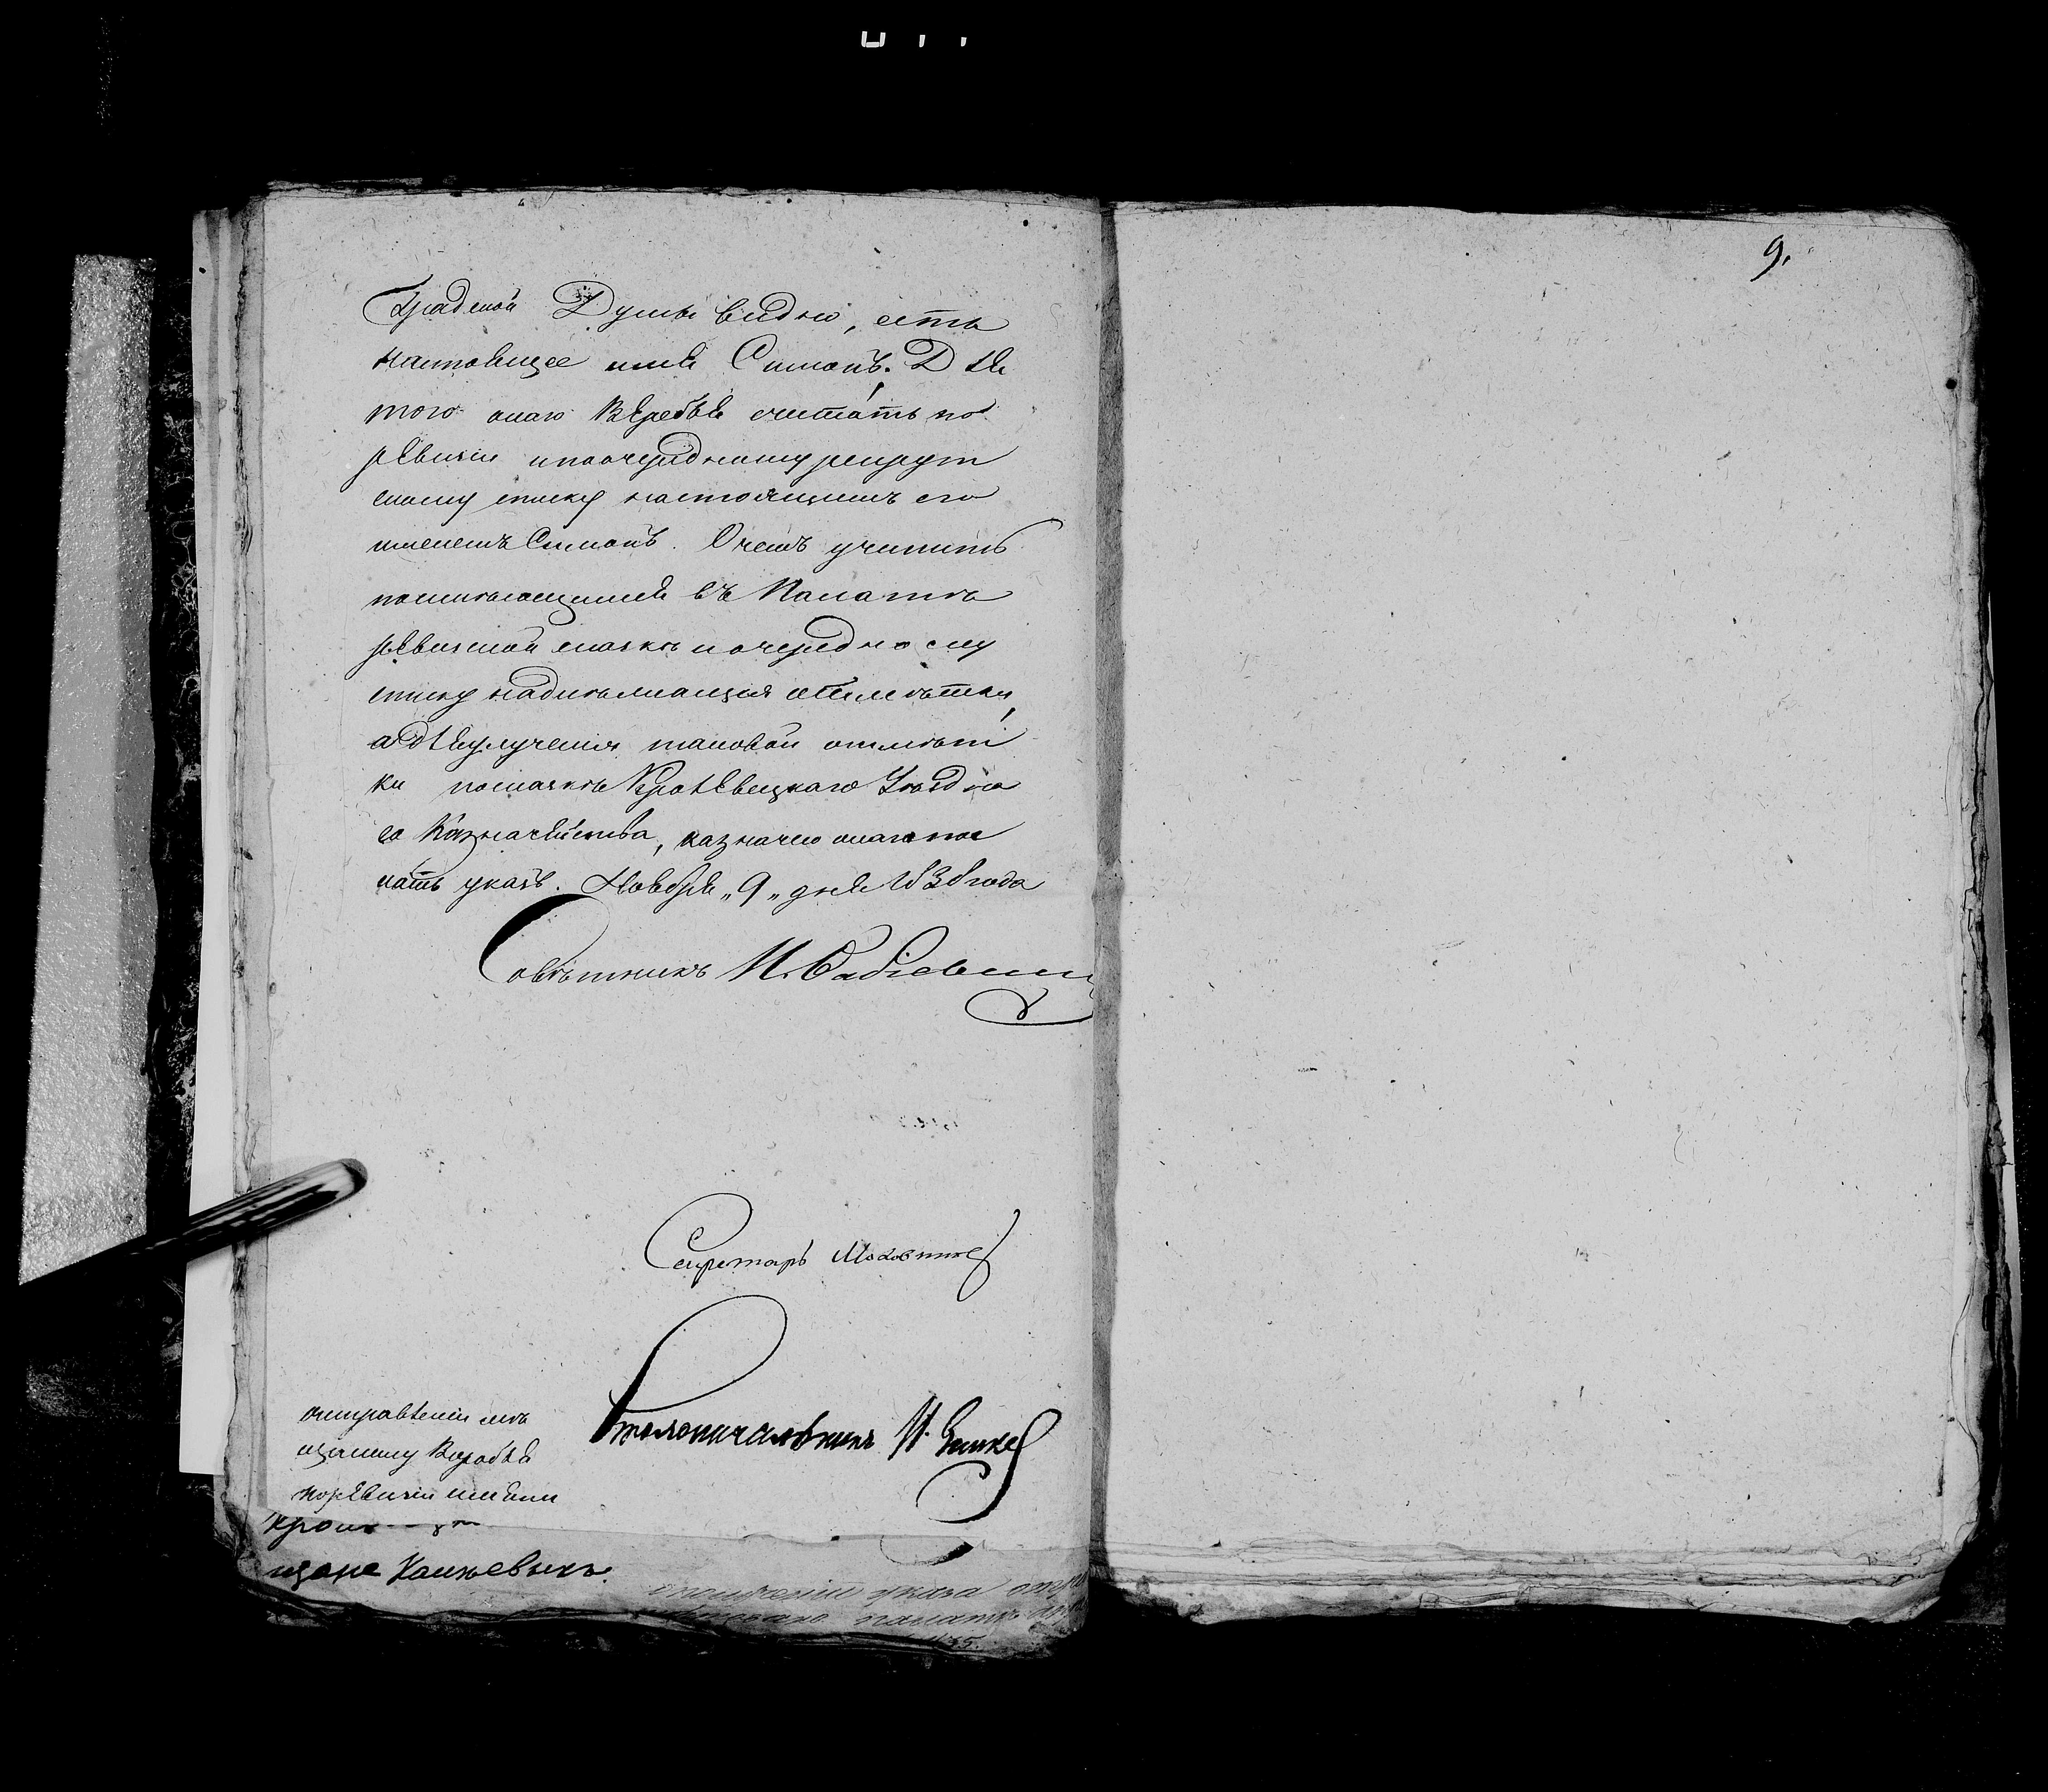 Градской Думы видно, есть
настоящее имя Симонъ. Для
того онаго Веребья считать по
ревизіи ипоочередному рекрут
скому списку настоящимъ его
именемъ Симонъ. Очемъ учинить
поимѣющимся въ Палатѣ
ревизской сказкѣ иочередному
списку надлежащія отмѣтки,
адля учиненія таковой отмѣт
ки посказкѣ Кролевецкаго Уѣздна
го Казначейства, казначею онаго пос
лать указъ. Ноября „9„ дня 1838 года
Совѣтникъ И.
Секретарь
Столоначальникъ И.
оисправленіи мѣ
щанину
поревизіи имени
9.